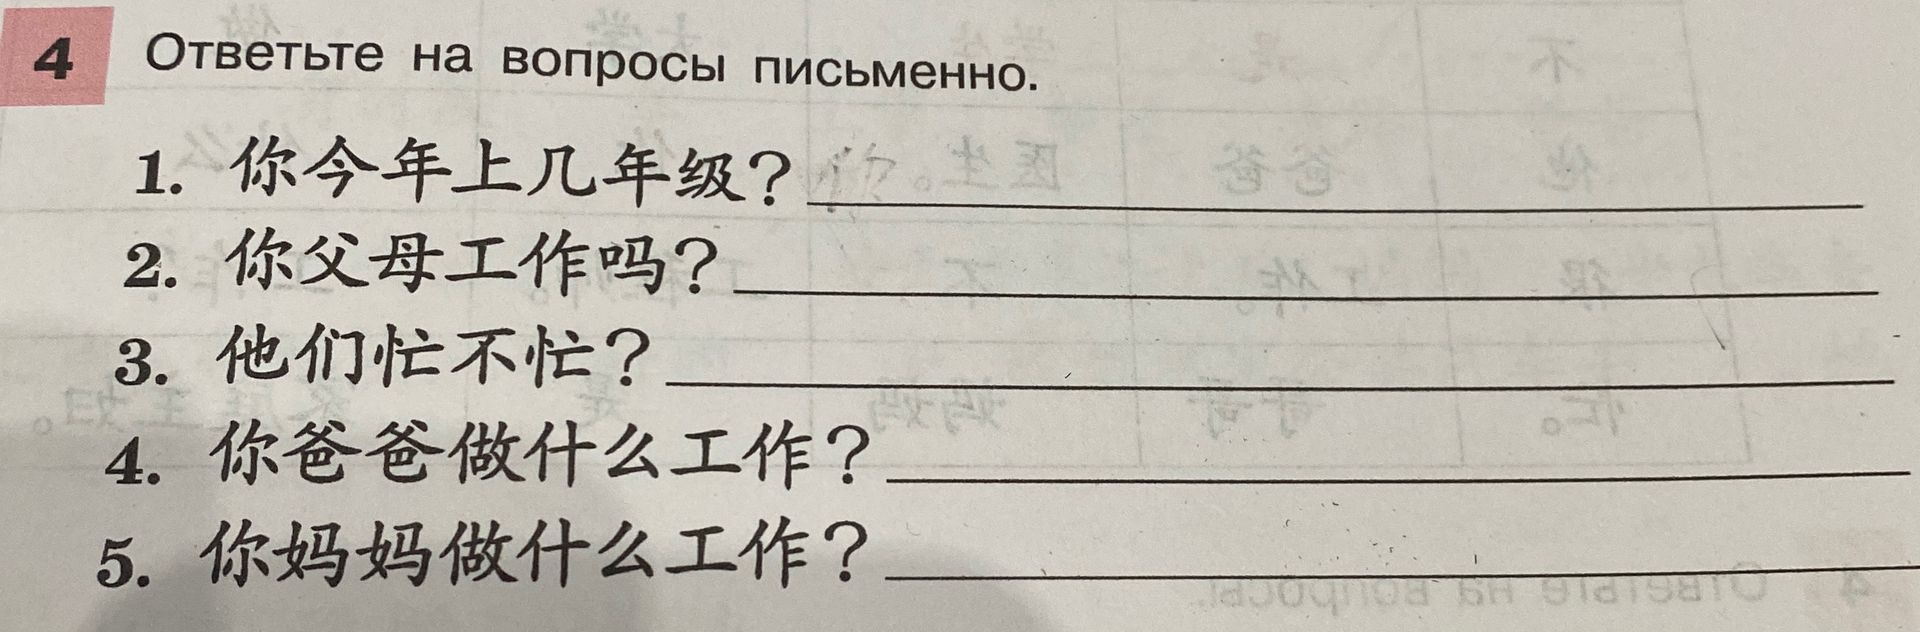 4 Ответьте на вопросы письменно.
1. 你今年上几年级？
2. 你父母工作吗？
3. 他们忙不忙？
4. 你爸爸做什么工作？
5. 你妈妈做什么工作？